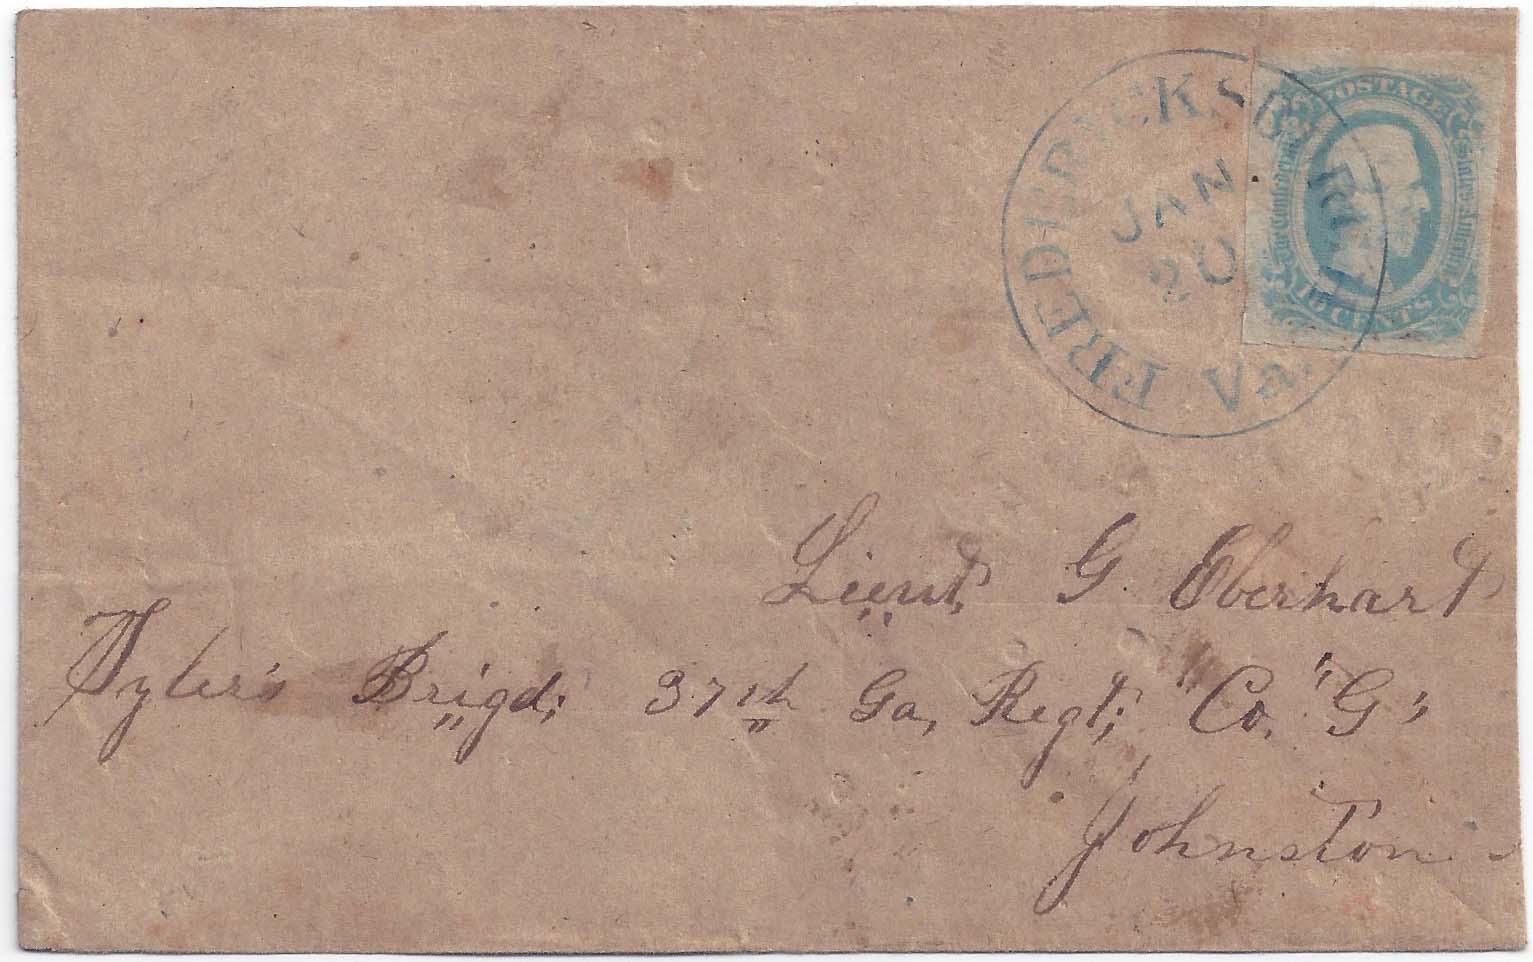 FREDERICKSBURG
Va.
JAN
20
POSTAGE
The Confederate States America
10 CENTS
Lieut, G. Eberhart
Tyler's Brigd; 37th Ga, Regt; "Co, "G"
Johnston